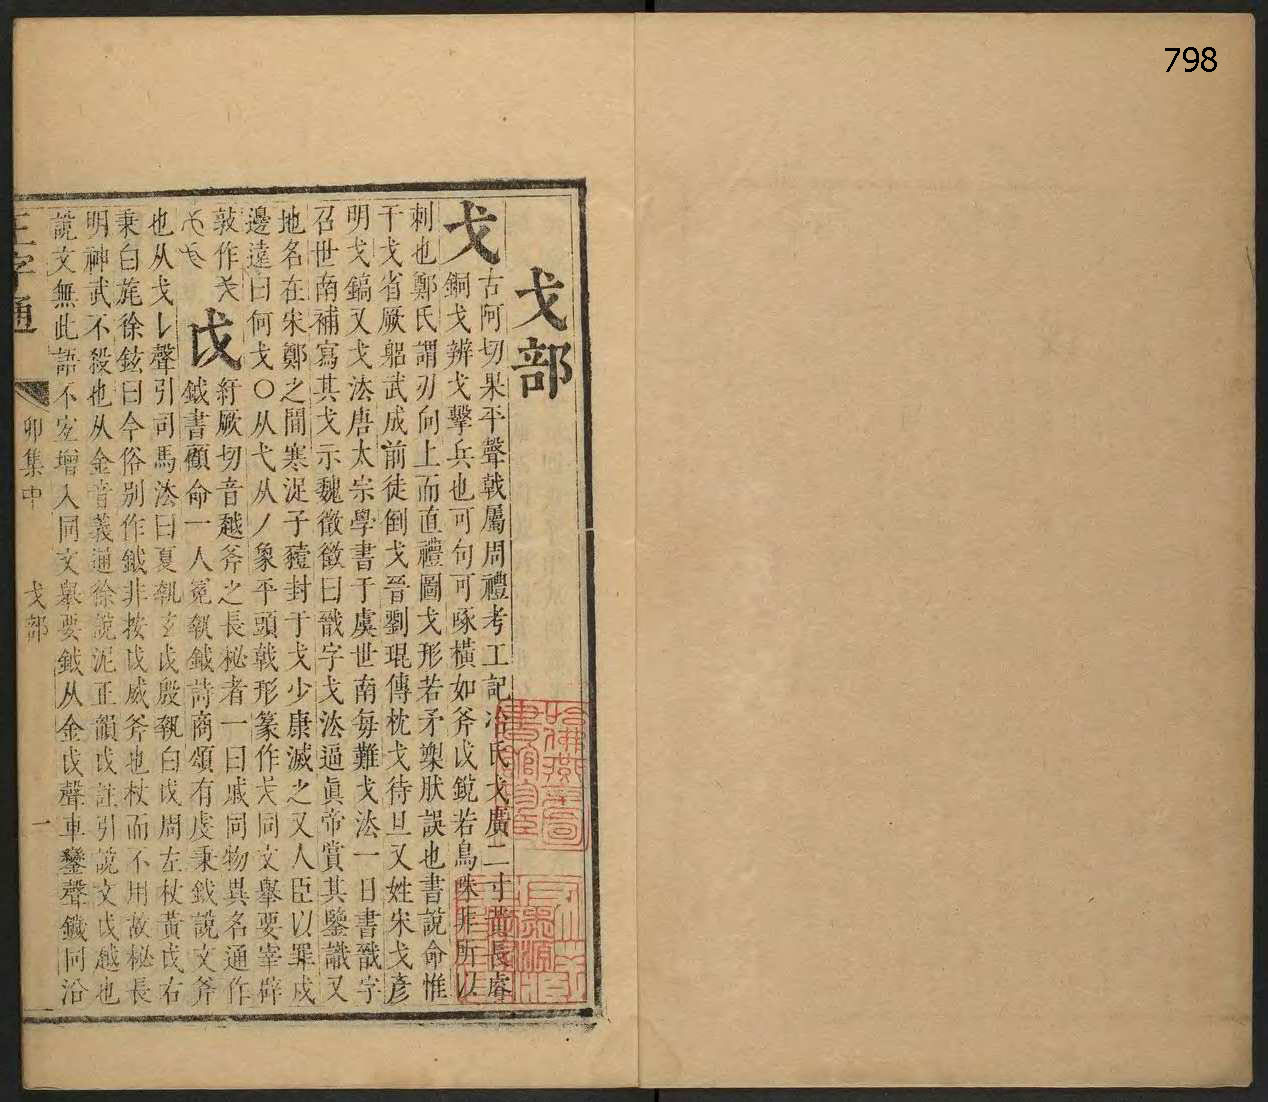 798
戈部
戈 古阿切果平聲戟屬周禮考工記冶氏戈廣二寸
銅戈辨戈擊兵也可句可啄橫如斧戉銳若鳥咮非所以
刺也鄭氏謂刃向上而直禮圖戈形若矛槊狀誤也書說命惟
干戈省厥躬武成前徒倒戈晉劉琨傳枕戈待旦又姓宋戈彥
明戈鎬又戈法唐太宗學書于虞世南每難戈法一日書戩字
召世南補寫其戈示魏徵徵曰戩字戈法逼眞帝賞其鑒識又
地名在宋鄭之間寒浞子豷封于戈少康滅之又人臣以罪戍
邊遠曰何戈○从弋从丿象平頭戟形篆作 同文舉要宰辟
敦作
戉 紆厥切音越斧之長柲者一曰戚同物異名通作
鉞書顧命一人冕執鉞詩商頌有虔秉鉞說文斧
也从戈𠄌聲引司馬法曰夏執玄戉殷執白戉周左杖黃戉右
秉白旄徐鉉曰今俗別作鉞非按戉威斧也杖而不用故柲長
明神武不殺也从金音義通徐說泥正韻戉註引說文戉越也
說文無此語不宐增入同文舉要鉞从金戉聲車鑾聲鐬同沿
正字通
卯集中
戈部
一